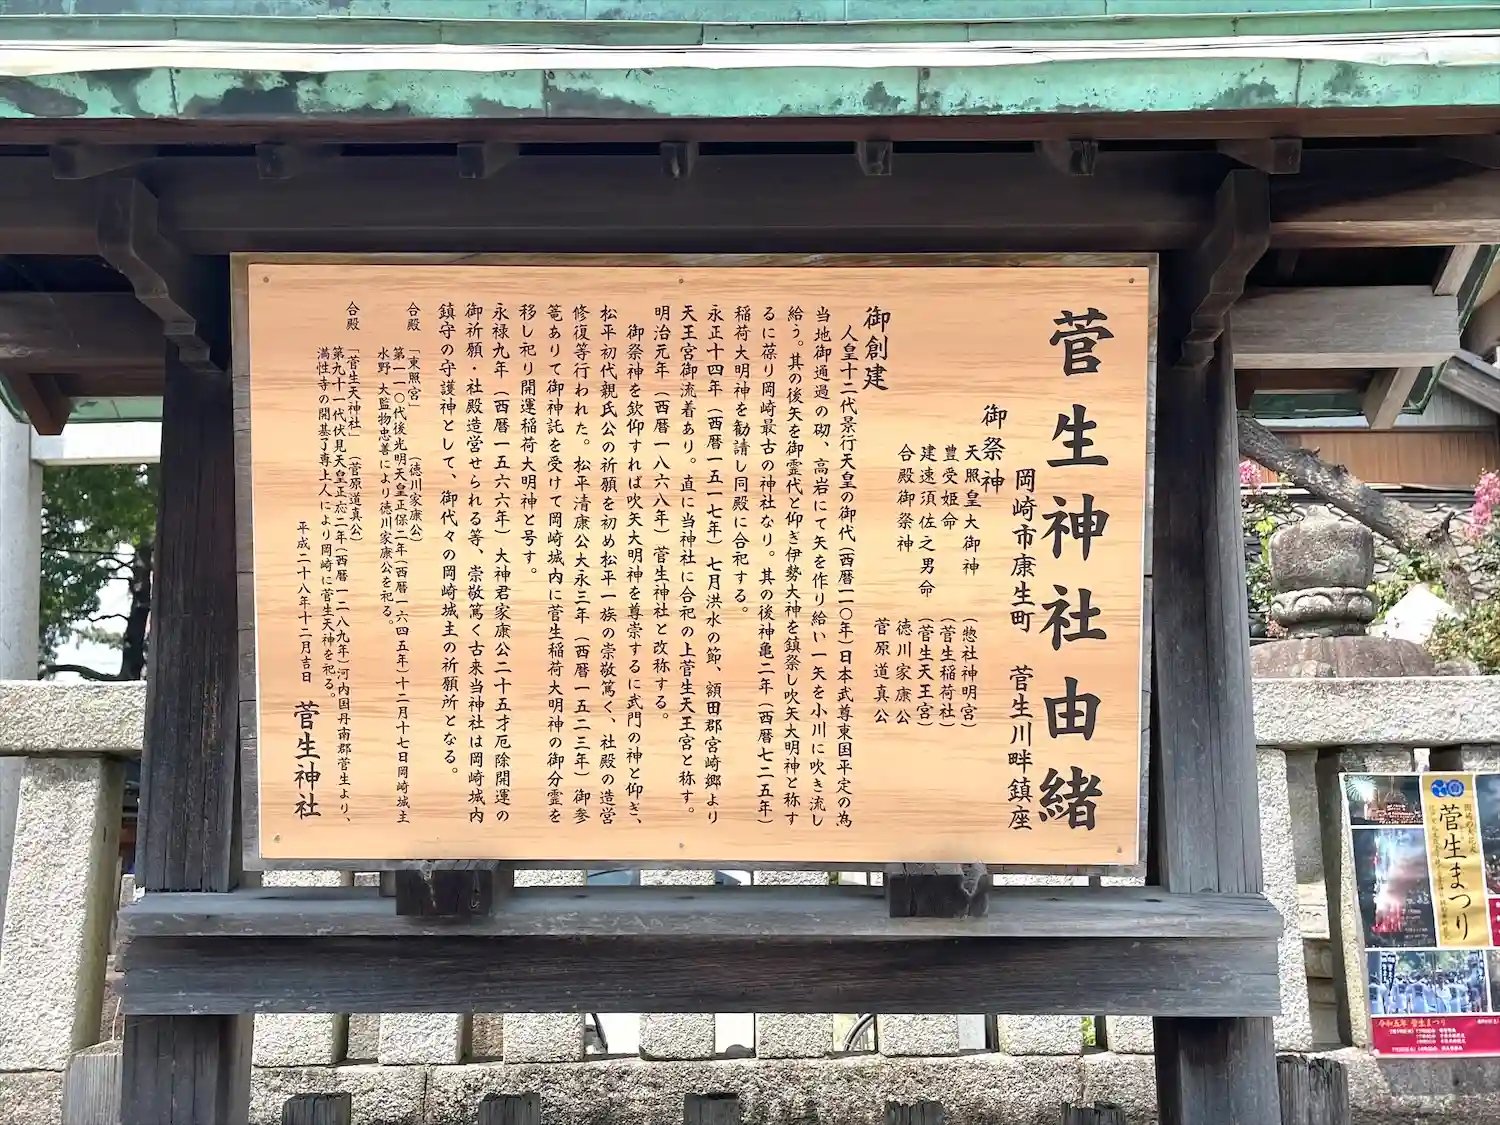 菅生神社由緒
岡崎市康生町　菅生川畔鎮座
御祭神
天照皇大御神　(惣社神明宮)
豊受姫命　(菅生稲荷社)
建速須佐之男命　(菅生天王宮)
合殿御祭神　徳川家康公
菅原道真公
御創建
人皇十二代景行天皇の御代(西暦一一〇年)日本武尊東国平定の為
当地御通過の砌、高岩にて矢を作り給い一矢を小川に吹き流し
給う。其の後矢を御霊代と仰ぎ伊勢大神を鎮祭し吹矢大明神と称す
るに葆り岡崎最古の神社なり。其の後神亀二年(西暦七二五年)
稲荷大明神を勧請し同殿に合祀する。
永正十四年(西暦一五一七年)七月洪水の節、額田郡宮崎郷より
天王宮御流着あり。直に当神社に合祀の上菅生天王宮と称す。
明治元年(西暦一八六八年)菅生神社と改称する。
御祭神を欽仰すれば吹矢大明神を尊崇するに武門の神と仰ぎ、
松平初代親氏公の祈願を初め松平一族の崇敬篤く、社殿の造営
修復等行われた。松平清康公大永三年(西暦一五二三年)御参
篭ありて御神託を受けて岡崎城内に菅生稲荷大明神の御分霊を
移し祀り開運稲荷大明神と号す。
永禄九年(西暦一五六六年)大神君家康公二十五才厄除開運の
御祈願・社殿造営せられる等、崇敬篤く古来当神社は岡崎城内
鎮守の守護神として、御代々の岡崎城主の祈願所となる。
合殿　「東照宮」(徳川家康公)
第一一〇代後光明天皇正保二年(西暦一六四五年)十二月十七日岡崎城主
水野大監物忠善により徳川家康公を祀る。
合殿　「菅生天神社」(菅原道真公)
第九十一代伏見天皇正応二年(西暦一二八九年)河内国丹南郡菅生より、
満性寺の開基了専上人により岡崎に菅生天神を祀る。
平成二十八年十二月吉日　菅生神社
菅生まつり
令和五年 菅生まつり